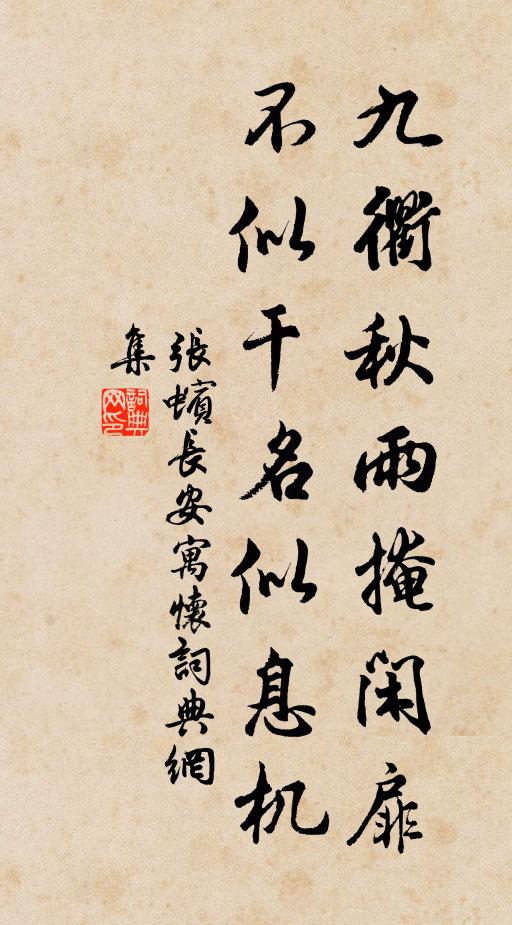 九衢秋雨掩閑扉
不似干名似息机
張蠙長安寓懷詞典網
集
詞典網印